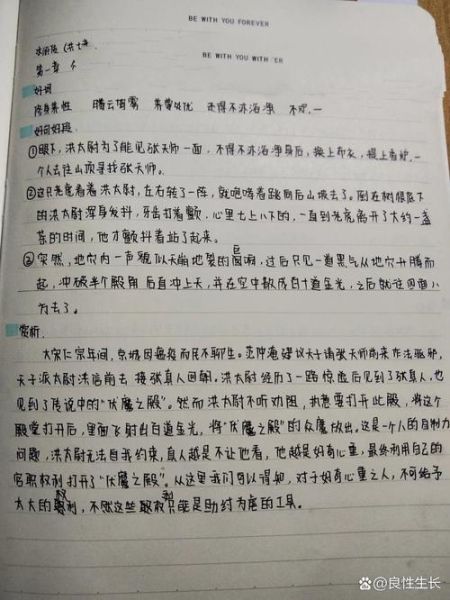 BE WITH YOU FOREVER
BE WITH YOU WITH ER
水浒传
第一章
好词
修身养性 腾云驾雾 养尊处优
好句好段
①眼下,洪太尉为了能见张天师一面,不得不沐浴净身后,换上布衣,提上香炉,一
个人去往山顶寻找张天师。
②这只老虎看着洪太尉,左右转了一阵,就咆哮着跳向后山坡去了。倒在树根底下
的洪太尉浑身发抖,牙齿打着颤,心里七上八下的,一直到老虎离开了大约一盏
茶的时间,他才颤抖着站了起来。
③突然,地穴内一声貌似天崩地裂的巨响,过后只见一道黑气从地穴升腾而
起,冲破半个殿角后直冲上天,并在空中散成百十道金光,之后就往四面八
方去了。
赏析
大宋仁宗年间,京城因瘟疫而民不聊生。范仲淹建议天子请张天师前来作法驱邪,
天子派太尉洪信前去接张真人回朝。洪太尉经历了一路惊险后见到了张真人,也
见到了传说中的“伏魔之殿”。然而洪太尉不听劝阻,执意要打开此殿,将这个
殿堂打开后,里面飞射出百道金光,将“伏魔之殿”的众魔放出。这是一个人的自制力
问题,洪太尉无法自我约束,真人越是不让他看,他越是好奇心重,最终利用自己的
官职权利打开了“伏魔之殿”。从这里我们可以得知,对于好奇心重之人,不可给予
太大的权利,不然这些职权只能是助纣为虐的工具。
@良性生长